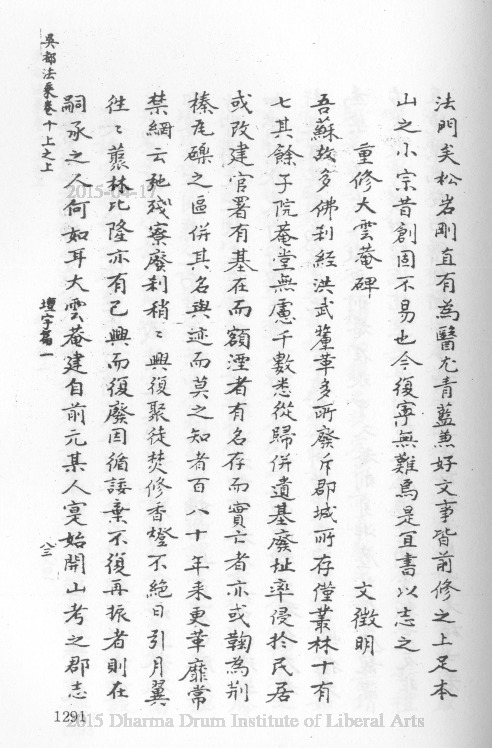 法門矣松岩剛直有為醫尤青藍兼好文事皆前修之上足本
山之小宗昔創固不易也今復事無難焉是宜書以志之
重修大雲菴碑 文徵明
吾蘇故多佛刹經洪武釐革多所廢斥郡城所存僅叢林十有
七其餘子院菴堂無慮千數悉從歸併遺基廢址率侵於民居
或改建官署有基在而額湮者有名存而實亡者亦或鞠為荆
榛瓦礫之區併其名與迹而莫之知者百八十年來更革靡常
禁網云弛殘寮廢刹稍〻興復聚徒焚修香燈不絕日引月翼
往〻叢林比隆亦有已興而復廢因循諉棄不復再振者則在
嗣承之人何如耳大雲菴建自前元某人寔始開山考之郡志
吳都法乘卷十上之上 壇宇篇一 八三
1291
2015-04-17
2015 Dharma Drum Institute of Liberal Arts